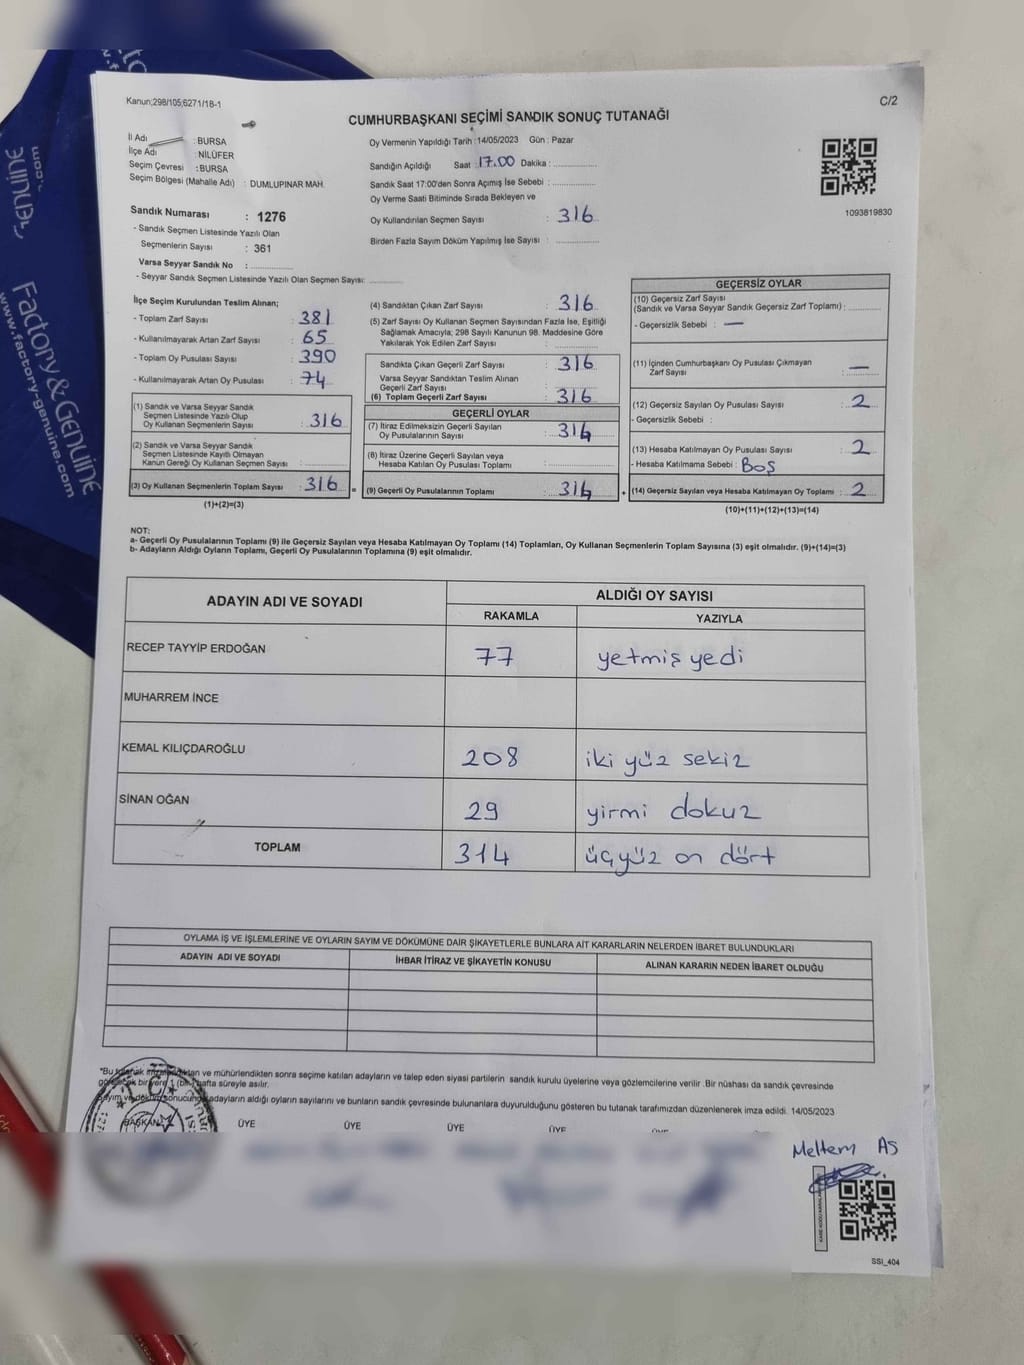 Kanun;298/105;6271/18-1
C/2
CUMHURBAŞKANI SEÇİMİ SANDIK SONUÇ TUTANAĞI
İl Adı : BURSA
İlçe Adı : NİLÜFER
Seçim Çevresi : BURSA
Seçim Bölgesi (Mahalle Adı) : DUMLUPINAR MAH.
Sandık Numarası : 1276
- Sandık Seçmen Listesinde Yazılı Olan
Seçmenlerin Sayısı : 361
Varsa Seyyar Sandık No :
- Seyyar Sandık Seçmen Listesinde Yazılı Olan Seçmen Sayısı:
Oy Vermenin Yapıldığı Tarih : 14/05/2023 Gün : Pazar
Sandığın Açıldığı Saat : 17.00 Dakika :
Sandık Saat 17:00'den Sonra Açımış İse Sebebi :
Oy Verme Saati Bitiminde Sırada Bekleyen ve
Oy Kullandırılan Seçmen Sayısı : 316
Birden Fazla Sayım Döküm Yapılmış İse Sayısı :
1093819830
İlçe Seçim Kurulundan Teslim Alınan;
- Toplam Zarf Sayısı : 381
- Kullanılmayarak Artan Zarf Sayısı : 65
- Toplam Oy Pusulası Sayısı : 390
- Kullanılmayarak Artan Oy Pusulası : 74
(1) Sandık ve Varsa Seyyar Sandık
Seçmen Listesinde Yazılı Olup
Oy Kullanan Seçmenlerin Sayısı : 316
(2) Sandık ve Varsa Seyyar Sandık
Seçmen Listesinde Kayıtlı Olmayan
Kanun Gereği Oy Kullanan Seçmen Sayısı :
(3) Oy Kullanan Seçmenlerin Toplam Sayısı : 316 =
(1)+(2)=(3)
(4) Sandıktan Çıkan Zarf Sayısı : 316
(5) Zarf Sayısı Oy Kullanan Seçmen Sayısından Fazla İse, Eşitliği
Sağlamak Amacıyla, 298 Sayılı Kanunun 98. Maddesine Göre
Yakılarak Yok Edilen Zarf Sayısı :
Sandıkta Çıkan Geçerli Zarf Sayısı : 316
Varsa Seyyar Sandıktan Teslim Alınan
Geçerli Zarf Sayısı :
(6) Toplam Geçerli Zarf Sayısı : 316
GEÇERLİ OYLAR
(7) İtiraz Edilmeksizin Geçerli Sayılan
Oy Pusulalarının Sayısı : 314
(8) İtiraz Üzerine Geçerli Sayılan veya
Hesaba Katılan Oy Pusulası Toplamı :
(9) Geçerli Oy Pusulalarının Toplamı : 314 +
GEÇERSİZ OYLAR
(10) Geçersiz Zarf Sayısı
(Sandık ve Varsa Seyyar Sandık Geçersiz Zarf Toplamı) :
- Geçersizlik Sebebi : —
(11) İçinden Cumhurbaşkanı Oy Pusulası Çıkmayan
Zarf Sayısı : —
(12) Geçersiz Sayılan Oy Pusulası Sayısı : 2
- Geçersizlik Sebebi :
(13) Hesaba Katılmayan Oy Pusulası Sayısı : 2
- Hesaba Katılmama Sebebi : Boş
(14) Geçersiz Sayılan veya Hesaba Katılmayan Oy Toplamı : 2
(10)+(11)+(12)+(13)=(14)
NOT:
a- Geçerli Oy Pusulalarının Toplamı (9) ile Geçersiz Sayılan veya Hesaba Katılmayan Oy Toplamı (14) Toplamları, Oy Kullanan Seçmenlerin Toplam Sayısına (3) eşit olmalıdır. (9)+(14)=(3)
b- Adayların Aldığı Oyların Toplamı, Geçerli Oy Pusulalarının Toplamına (9) eşit olmalıdır.
ADAYIN ADI VE SOYADI
ALDIĞI OY SAYISI
RAKAMLA YAZIYLA
RECEP TAYYİP ERDOĞAN 77 yetmiş yedi
MUHARREM İNCE
KEMAL KILIÇDAROĞLU 208 iki yüz sekiz
SİNAN OĞAN 29 yirmi dokuz
TOPLAM 314 üçyüz on dört
OYLAMA İŞ VE İŞLEMLERİNE VE OYLARIN SAYIM VE DÖKÜMÜNE DAİR ŞİKAYETLERLE BUNLARA AİT KARARLARIN NELERDEN İBARET BULUNDUKLARI
ADAYIN ADI VE SOYADI İHBAR İTİRAZ VE ŞİKAYETİN KONUSU ALINAN KARARIN NEDEN İBARET OLDUĞU
*Bu ve mühürlendikten sonra seçime katılan adayların ve talep eden siyasi partilerin sandık kurulu üyelerine veya gözlemcilerine verilir .Bir nüshası da sandık çevresinde
bir yere 1 (bir) hafta süreyle asılır.
Sayım ve döküm sonucunda adayların aldığı oyların sayılarını ve bunların sandık çevresinde bulunanlara duyurulduğunu gösteren bu tutanak tarafımızdan düzenlenerek imza edildi. 14/05/2023
BAŞKAN ÜYE ÜYE ÜYE ÜYE ÜYE
T.C.
Meltem AS
SSI_404
Factory&Genuine
www.factory-genuine.com